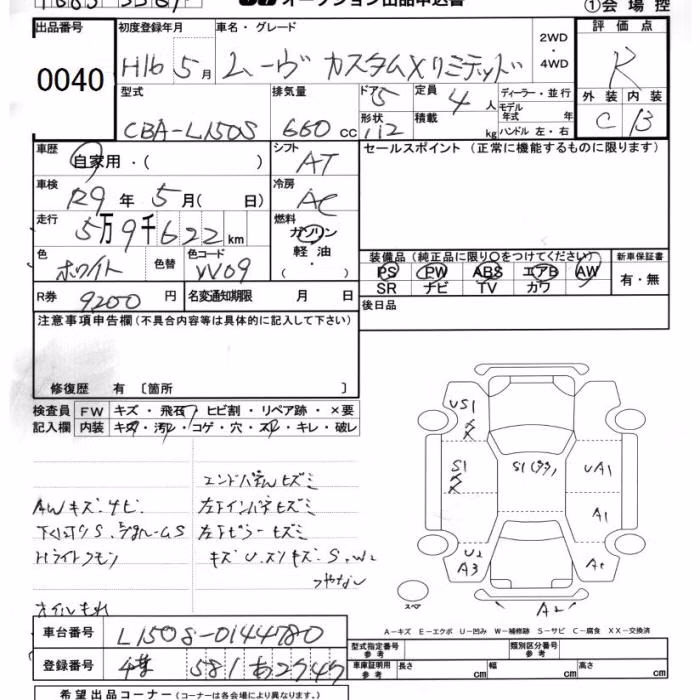 オークション出品申込書
①会場控
出品番号 初度登録年月 車名・グレード 評価点
0040
H16 5月 ムーヴ カスタムXリミテッド 2WD・4WD R
型式 排気量 ドア 定員 ディーラー・並行 外装 内装
CBA-L150S 660cc 5 4人 モデル年式 年 C B
形状 積載
112 kg ハンドル 左・右
車歴 自家用・( ) シフト AT セールスポイント(正常に機能するものに限ります)
車検 R9年 5月( 日) 冷房 AC
走行 5万9千622km 燃料 ガソリン・軽油・( )
色 ホワイト 色替 色コード W09
装備品(純正品に限り○をつけてください) 新車保証書
PS PW ABS エアB AW 有・無
SR ナビ TV カワ
R券 9200円 名変通知期限 月 日 後日品
注意事項申告欄(不具合内容等は具体的に記入して下さい)
修復歴 有 〔箇所 〕
検査員記入欄 FW キズ・飛石・ヒビ割・リペア跡・×要
内装 キズ・汚レ・コゲ・穴・スレ・キレ・破レ
エンドパネルヒズミ
AWキズ・サビ 左下インパネヒズミ
左下ピラーヒズミ
Hライトクモリ キズU.スリキズ.S.W2
ツヤなし
オイルもれ
US1 XX
S1 XX S1 UA1
A1
U2 A3 A1
スペア A2
A-キズ E-エクボ U-凹み W-補修跡 S-サビ C-腐食 XX-交換済
車台番号 L150S-0144780
型式指定番号 参考 類別区分番号 参考
登録番号 581あ2747
車庫証明用 参考 長さ cm 幅 cm 高さ cm
希望出品コーナー(コーナーは各会場により異なります。)